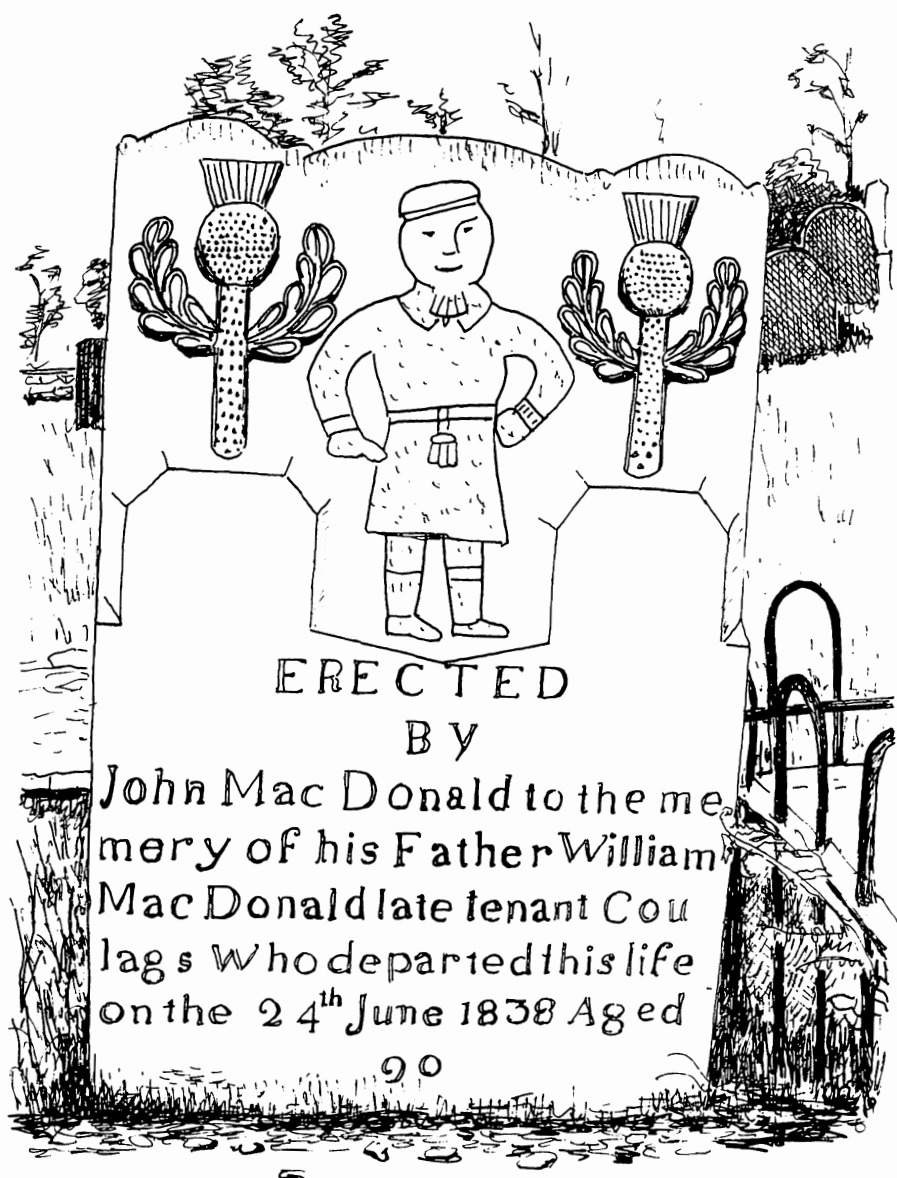 ERECTED
BY
John Mac Donald to the me
mory of his Father William
Mac Donald late tenant Cou
lags Who departed this life
on the 24th June 1838 Aged
90